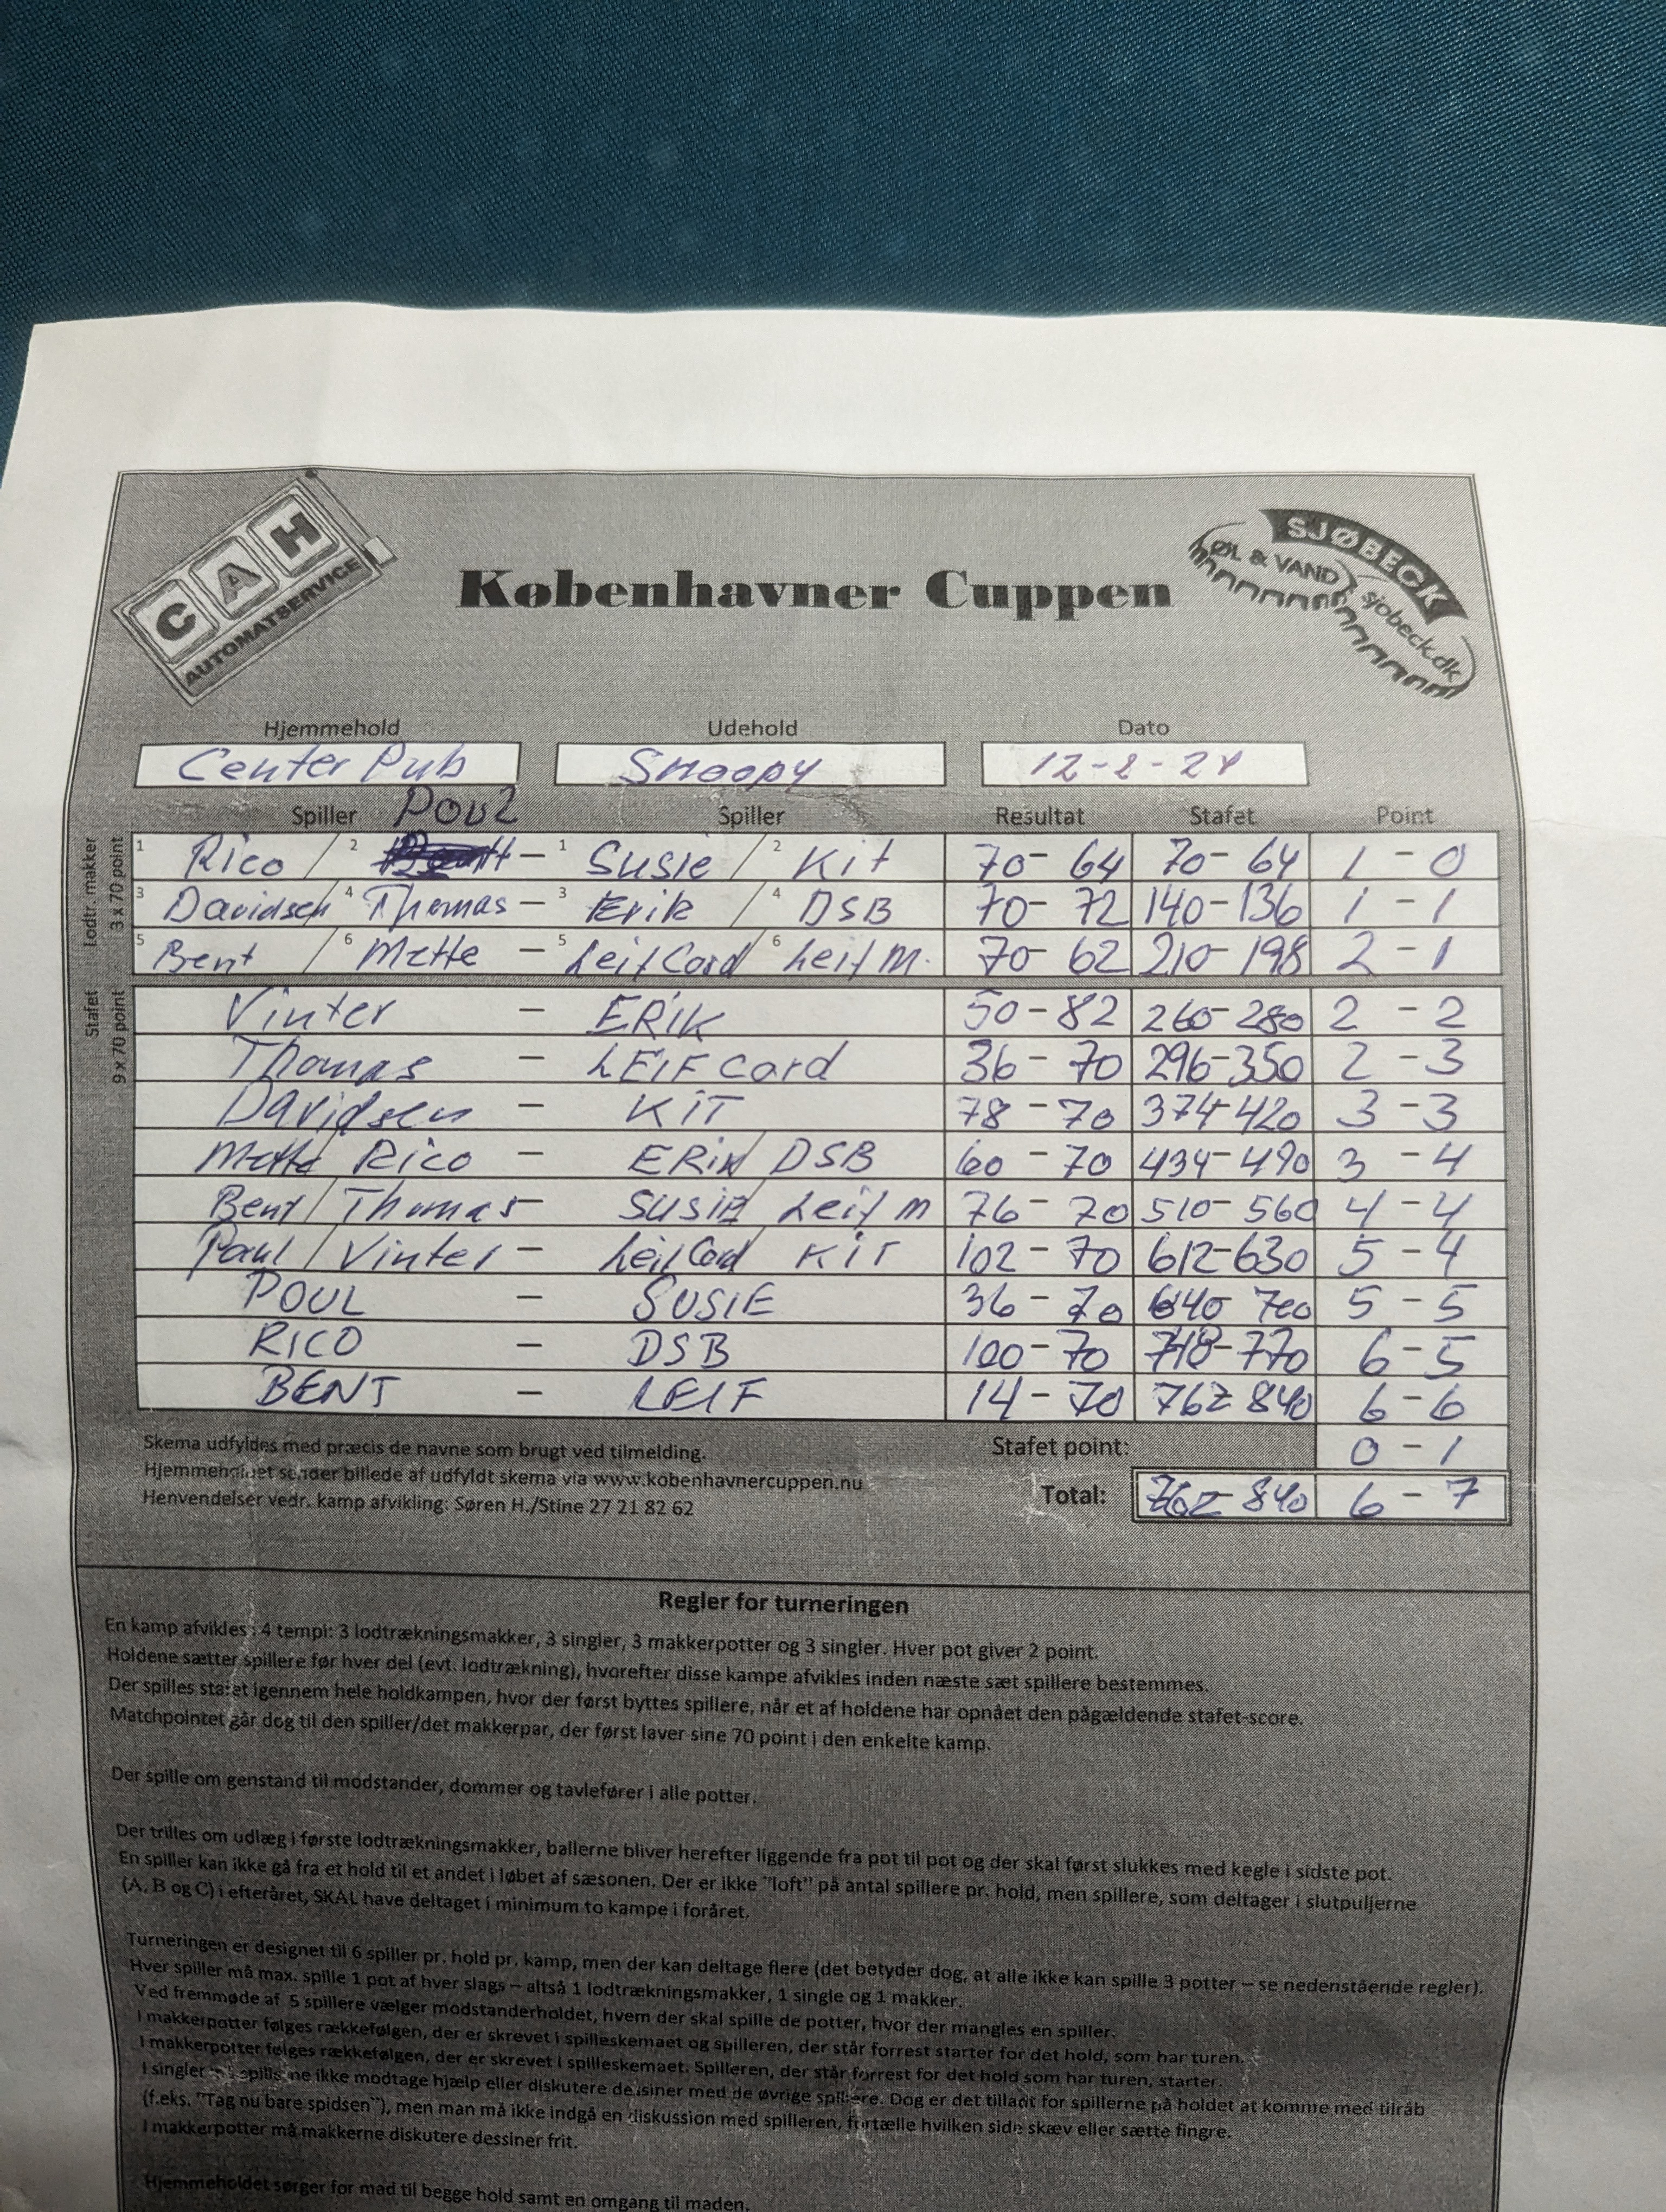 CAH
AUTOMATSERVICE
Københavner Cuppen
SJØBECK
ØL & VAND
sjobeck.dk
Hjemmehold Udehold Dato
Center Pub Snoopy 12-2-24
Spiller Poul Spiller Resultat Stafet Point
Lodtr. makker
3 x 70 point
1 Rico / 2 - 1 Susie / 2 Kit 70 - 64 70 - 64 1 - 0
3 Davidsen / 4 Thomas - 3 Erik / 4 DSB 70 - 72 140 - 136 1 - 1
5 Bent / 6 Mette - 5 Leif Card / 6 Leif M. 70 - 62 210 - 198 2 - 1
Stafet
9 x 70 point
Vinter - ERIK 50 - 82 260 - 280 2 - 2
Thomas - LEIF Card 36 - 70 296 - 350 2 - 3
Davidsen - KIT 78 - 70 374 - 420 3 - 3
Mette / Rico - ERIK / DSB 60 - 70 434 - 490 3 - 4
Bent / Thomas - SUSIE / Leif M 76 - 70 510 - 560 4 - 4
Poul / Vinter - Leif Card KIT 102 - 70 612 - 630 5 - 4
POUL - SUSIE 36 - 70 640 700 5 - 5
RICO - DSB 100 - 70 748 - 770 6 - 5
BENT - LEIF 14 - 70 762 840 6 - 6
Skema udfyldes med præcis de navne som brugt ved tilmelding. Stafet point: 0 - 1
Hjemmeholdet sender billede af udfyldt skema via www.kobenhavnercuppen.nu
Henvendelser vedr. kamp afvikling: Søren H./Stine 27 21 82 62 Total: 762 - 840 6 - 7
Regler for turneringen
En kamp afvikles i 4 templ: 3 lodtrækningsmakker, 3 singler, 3 makkerpotter og 3 singler. Hver pot giver 2 point.
Holdene sætter spillere før hver del (evt. lodtrækning), hvorefter disse kampe afvikles inden næste sæt spillere bestemmes.
Der spilles stafet igennem hele holdkampen, hvor der først byttes spillere, når et af holdene har opnået den pågældende stafet-score.
Matchpointet går dog til den spiller/det makkerpar, der først laver sine 70 point i den enkelte kamp.
Der spille om genstand til modstander, dommer og tavlefører i alle potter.
Der trilles om udlæg i første lodtrækningsmakker, ballerne bliver herefter liggende fra pot til pot og der skal først slukkes med kegle i sidste pot.
En spiller kan ikke gå fra et hold til et andet i løbet af sæsonen. Der er ikke "loft" på antal spillere pr. hold, men spillere, som deltager i slutpuljerne
(A, B og C) i efteråret, SKAL have deltaget i minimum to kampe i foråret.
Turneringen er designet til 6 spiller pr. hold pr. kamp, men der kan deltage flere (det betyder dog, at alle ikke kan spille 3 potter – se nedenstående regler).
Hver spiller må max. spille 1 pot af hver slags – altså 1 lodtrækningsmakker, 1 single og 1 makker.
Ved fremmøde af 5 spillere vælger modstanderholdet, hvem der skal spille de potter, hvor der mangles en spiller.
I makkerpotter følges rækkefølgen, der er skrevet i spilleskemaet og spilleren, der står forrest starter for det hold, som har turen.
I makkerpotter følges rækkefølgen, der er skrevet i spilleskemaet. Spilleren, der står forrest for det hold som har turen, starter.
I singler må spillerne ikke modtage hjælp eller diskutere dessiner med de øvrige spillere. Dog er det tilladt for spillerne på holdet at komme med tilråb
(f.eks. "Tag nu bare spidsen"), men man må ikke indgå en diskussion med spilleren, fortælle hvilken side skæv eller sætte fingre.
I makkerpotter må makkerne diskutere dessiner frit.
Hjemmeholdet sørger for mad til begge hold samt en omgang til maden.